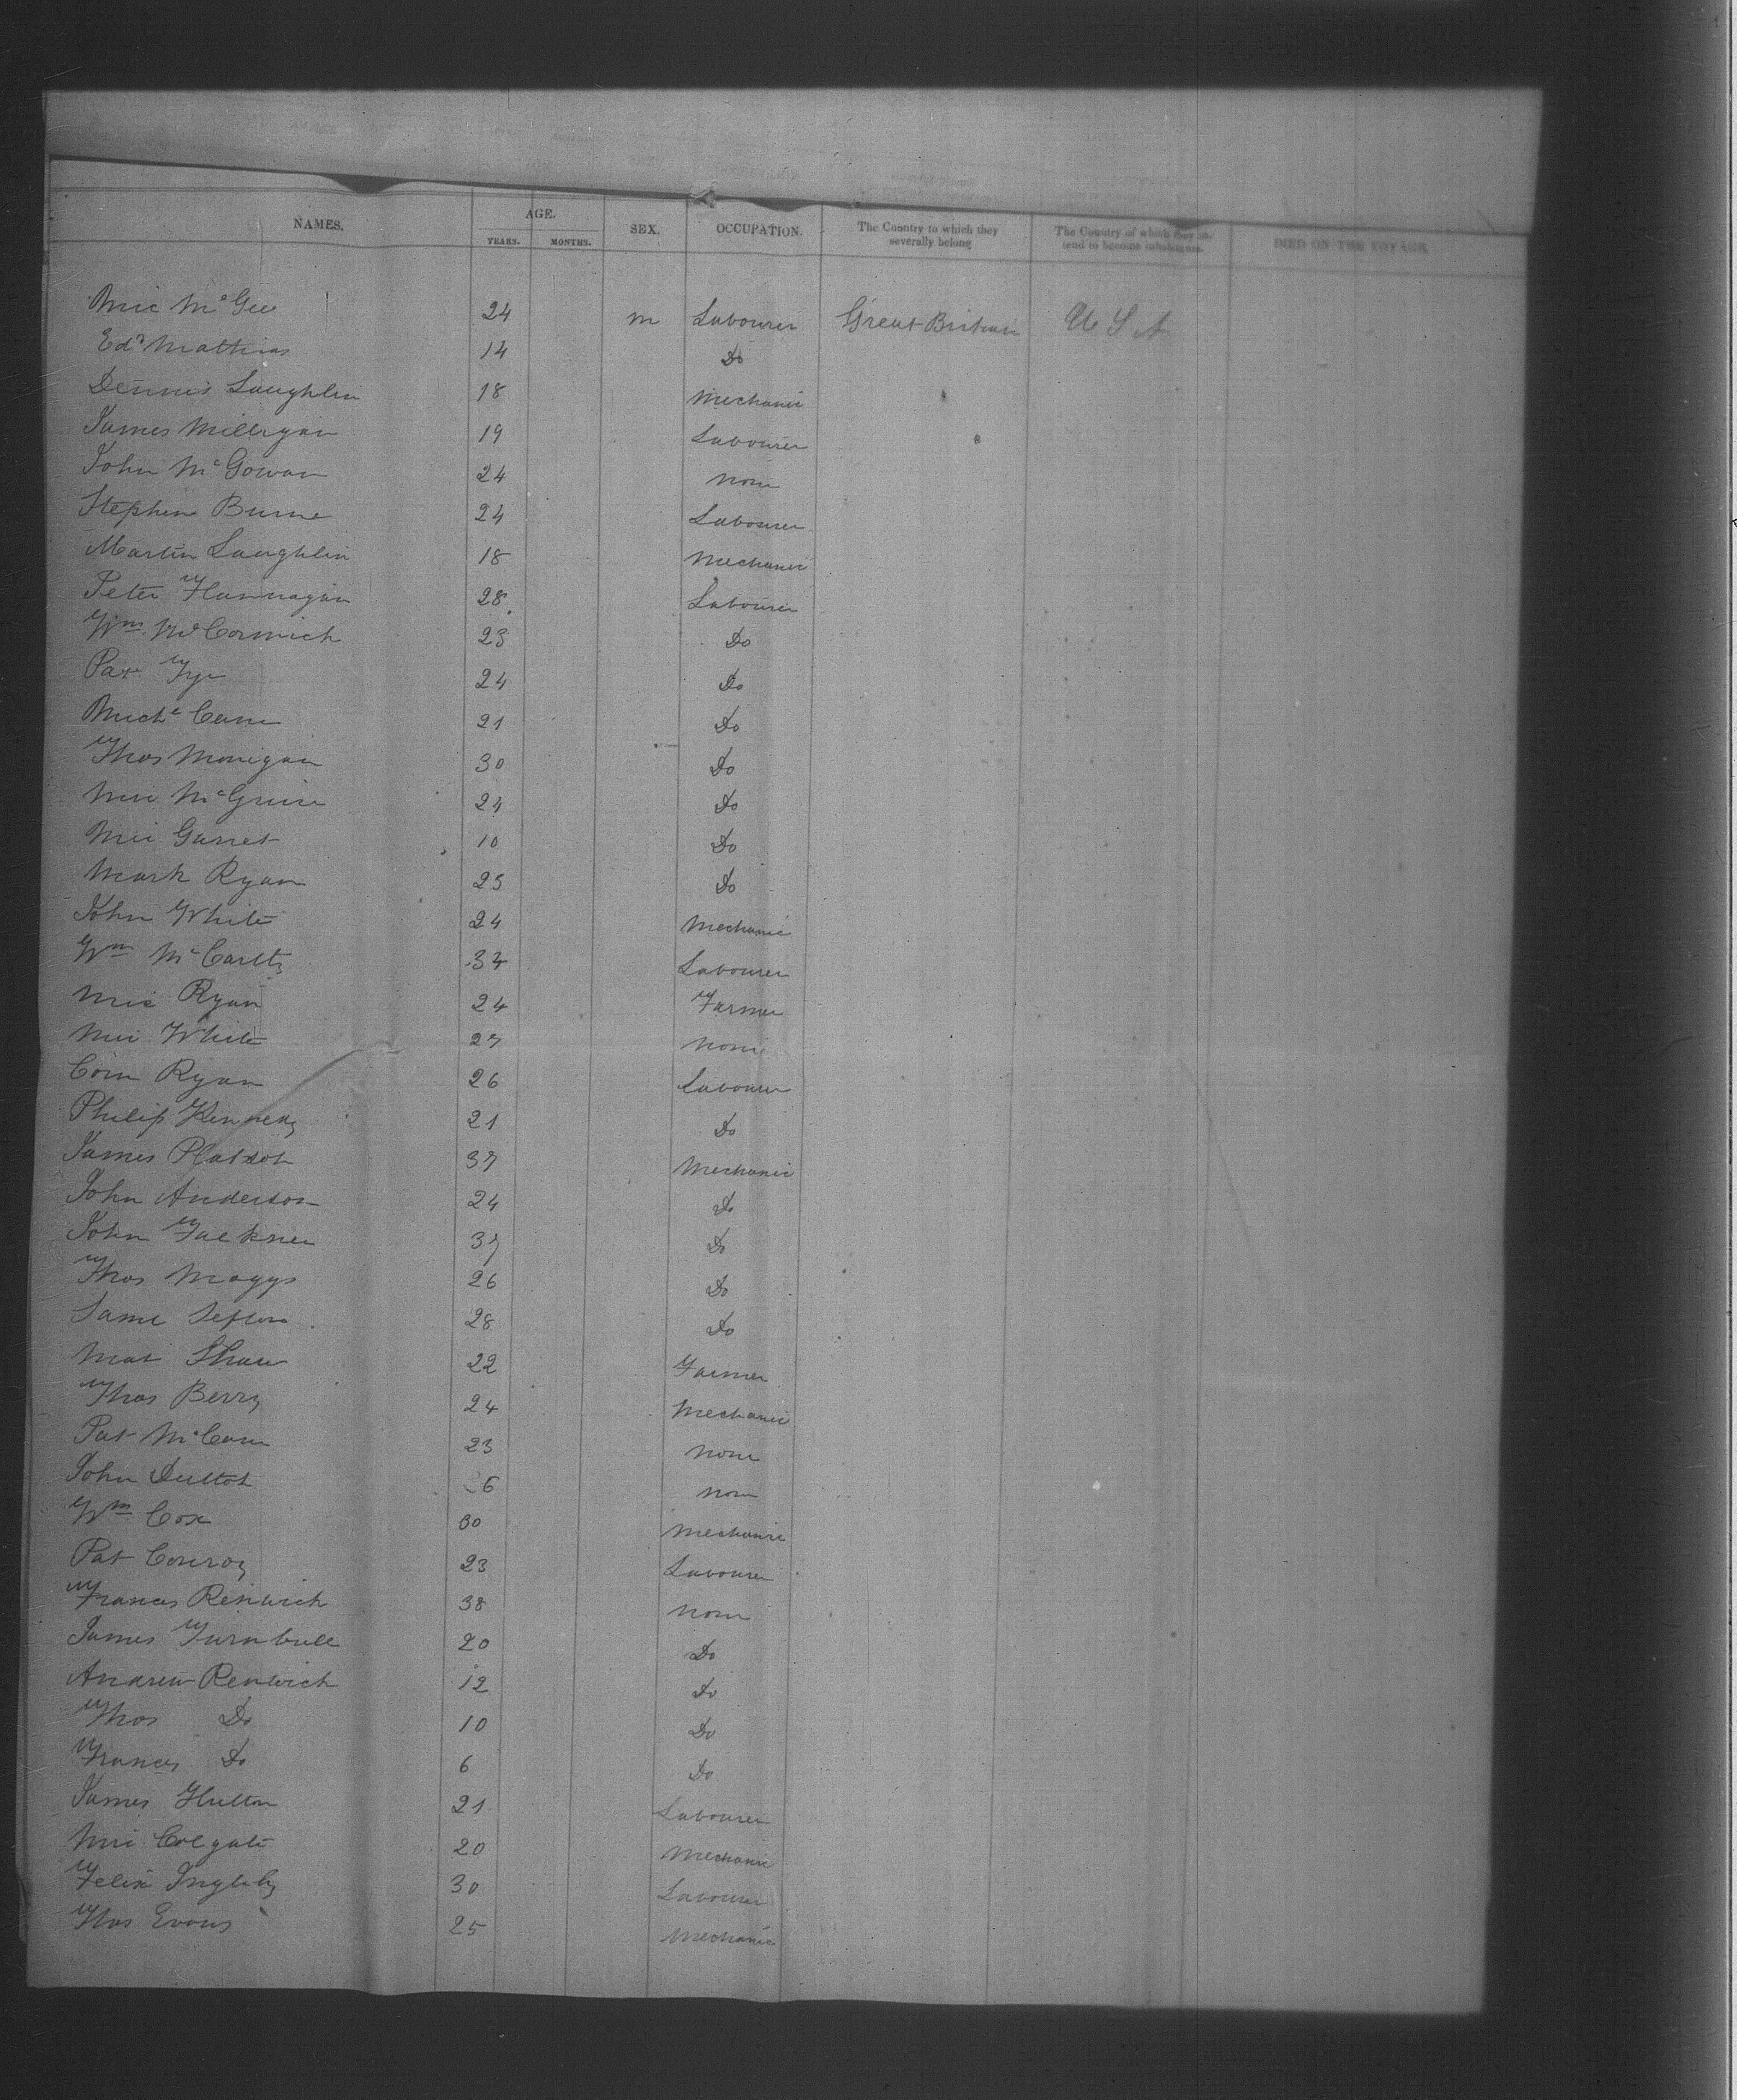 NAMES. AGE. YEARS. MONTHS. SEX. OCCUPATION. The Country to which they severally belong The Country of which they intend to become inhabitants. DIED ON THE VOYAGE
Mic McGee 24 m Labourer Great Britain U S A
Edd Mathias 14 Do
Dennis Laughlin 18 Mechanic
James Milligan 19 Labourer
John McGowan 24 None
Stephen Burne 24 Labourer
Martin Laughlin 18 Mechanic
Peter Hannagan 28 Labourer
Wm McCormick 23 Do
Pat Fye 24 Do
Michl Cane 21 Do
Thos Monigan 30 Do
Mic McGuire 24 Do
Mic Garret 10 Do
Mark Ryan 25 Do
John White 24 Mechanic
Wm McCarty 34 Labourer
Mic Ryan 24 Farmer
Mic White 27 None
Corn Ryan 26 Labourer
Philip Kennedy 21 Do
James 37 Mechanic
John Anderson 24 Do
John Falkner 37 Do
Thos Maggs 26 Do
Saml Sefton 28 Do
Mat Shaw 22 Farmer
Thos Berry 24 Mechanic
Pat McCann 23 None
John Dutton 6 None
Wm Cox 30 Mechanic
Pat Conroy 23 Labourer
Francis Renwick 38 None
James Turnbull 20 Do
Andrew Renwick 12 Do
Thos Do 10 Do
Frances Do 6 Do
James Hutton 21 Labourer
Mic Colgate 20 Mechanic
Felix Ingleby 30 Labourer
Thos Evans 25 Mechanic